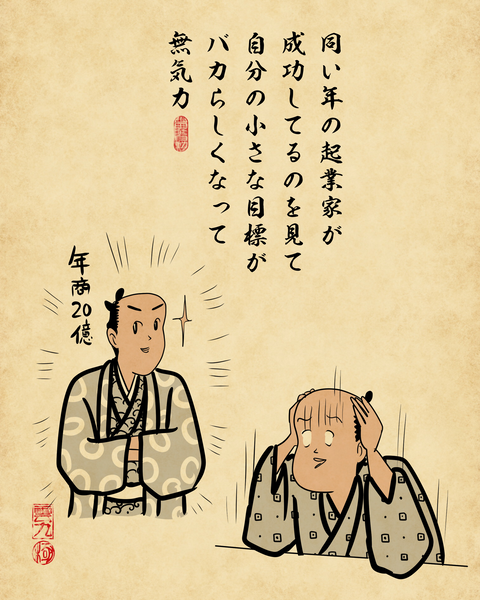 同い年の起業家が
成功してるのを見て
自分の小さな目標が
バカらしくなって
無気力
年商20億